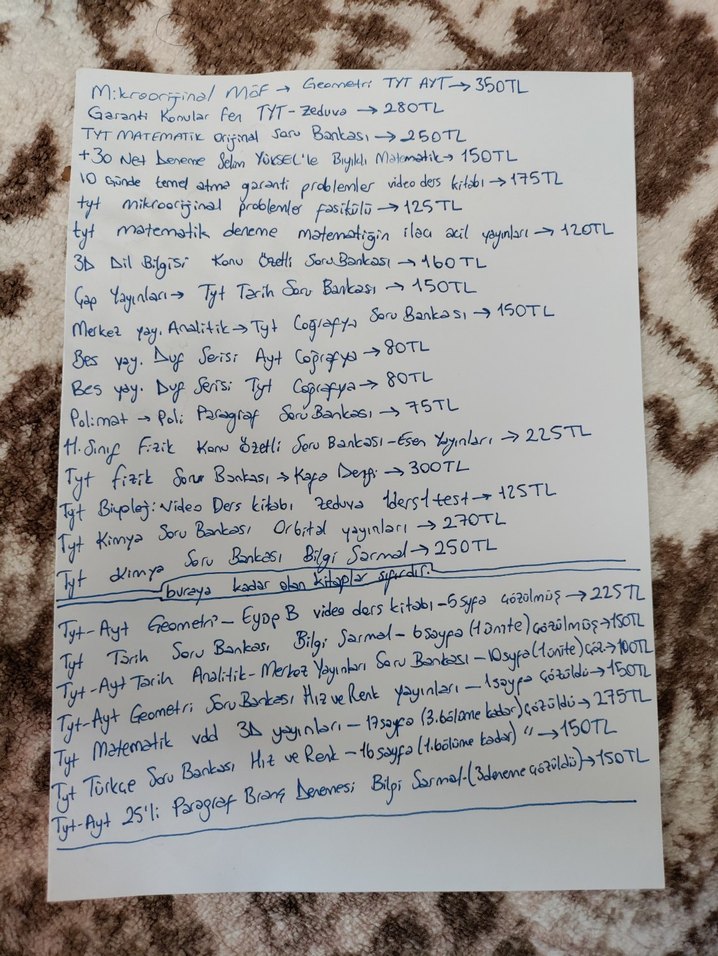 Mikrooriginal Möf → Geometri TYT AYT → 350TL
Garanti Konular fen TYT-Zeduva → 280TL
TYT MATEMATİK original Soru Bankası → 250TL
+30 Net Deneme Selim YÜKSEL'le Bıyıklı Matematik → 150TL
10 Günde temel atma garanti problemler video ders kitabı → 175TL
tyt mikrooriginal problemler fasikülü → 125TL
tyt matematik deneme matematiğin ilacı acil yayınları → 120TL
3D Dil Bilgisi Konu Özetli Soru Bankası → 160TL
Çap Yayınları → Tyt Tarih Soru Bankası → 150TL
Merkez yay. Analitik → Tyt Coğrafya Soru Bankası → 150TL
Bes yay. Duf Serisi Ayt Coğrafya → 80TL
Bes yay. Duf Serisi Tyt Coğrafya → 80TL
Polimat → Poli Paragraf Soru Bankası → 75TL
11.Sınıf Fizik Konu Özetli Soru Bankası - Esen Yayınları → 225TL
Tyt fizik Soru Bankası → Kafa Dengi → 300TL
Tyt Biyoloji: Video Ders kitabı Zeduva 1ders1test → 125TL
Tyt Kimya Soru Bankası Orbital yayınları → 270TL
Tyt Kimya Soru Bankası Bilgi Sarmal → 250TL
buraya kadar olan kitaplar sıfırdır.
Tyt-Ayt Geometri - Eyüp B video ders kitabı - 5 syfa çözülmüş → 225TL
Tyt Tarih Soru Bankası Bilgi Sarmal - 6 sayfa (1 ünite) çözülmüş → 150TL
Tyt-Ayt Tarih Analitik - Merkez Yayınları Soru Bankası - 10 syfa (1 ünite) çöz → 100TL
Tyt-Ayt Geometri Soru Bankası Hız ve Renk yayınları - 1 sayfa çözüldü → 150TL
Tyt Matematik vdd 3D yayınları - 17 sayfa (3.bölüme kadar) çözüldü → 275TL
Tyt Türkçe Soru Bankası Hız ve Renk - 16 sayfa (1.bölüme kadar) " → 150TL
Tyt-Ayt 25'li Paragraf Branş Denemesi Bilgi Sarmal - (3 deneme çözüldü) → 150TL